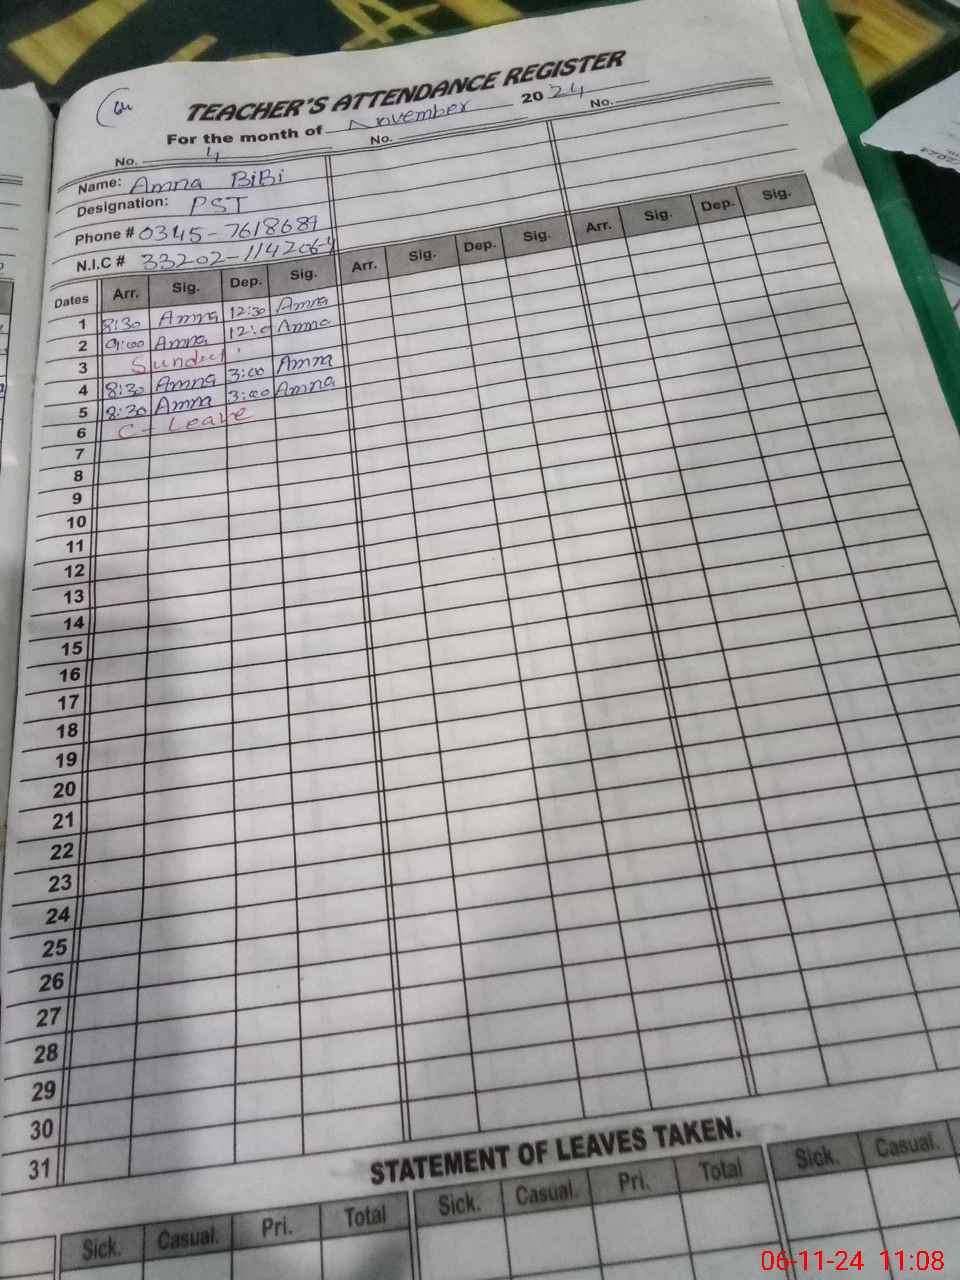 TEACHER'S ATTENDANCE REGISTER
For the month of November 2024
No. 4 No. No.
Name: Amna BiBi
Designation: PST
Phone # 0345-7618689
N.I.C # 33202-114206
Dates Arr. Sig. Dep. Sig. Arr. Sig. Dep. Sig. Arr. Sig. Dep. Sig.
1 8:30 Amna 12:30 Amna
2 9:00 Amna Amna
3
4 8:30 Amna 3:00 Amna
5 8:30 Amna 3:00 Amna
6 C - Leave
7
8
9
10
11
12
13
14
15
16
17
18
19
20
21
22
23
24
25
26
27
28
29
30
31
STATEMENT OF LEAVES TAKEN.
Sick. Casual. Pri. Total Sick. Casual. Pri. Total Sick. Casual.
06-11-24 11:08